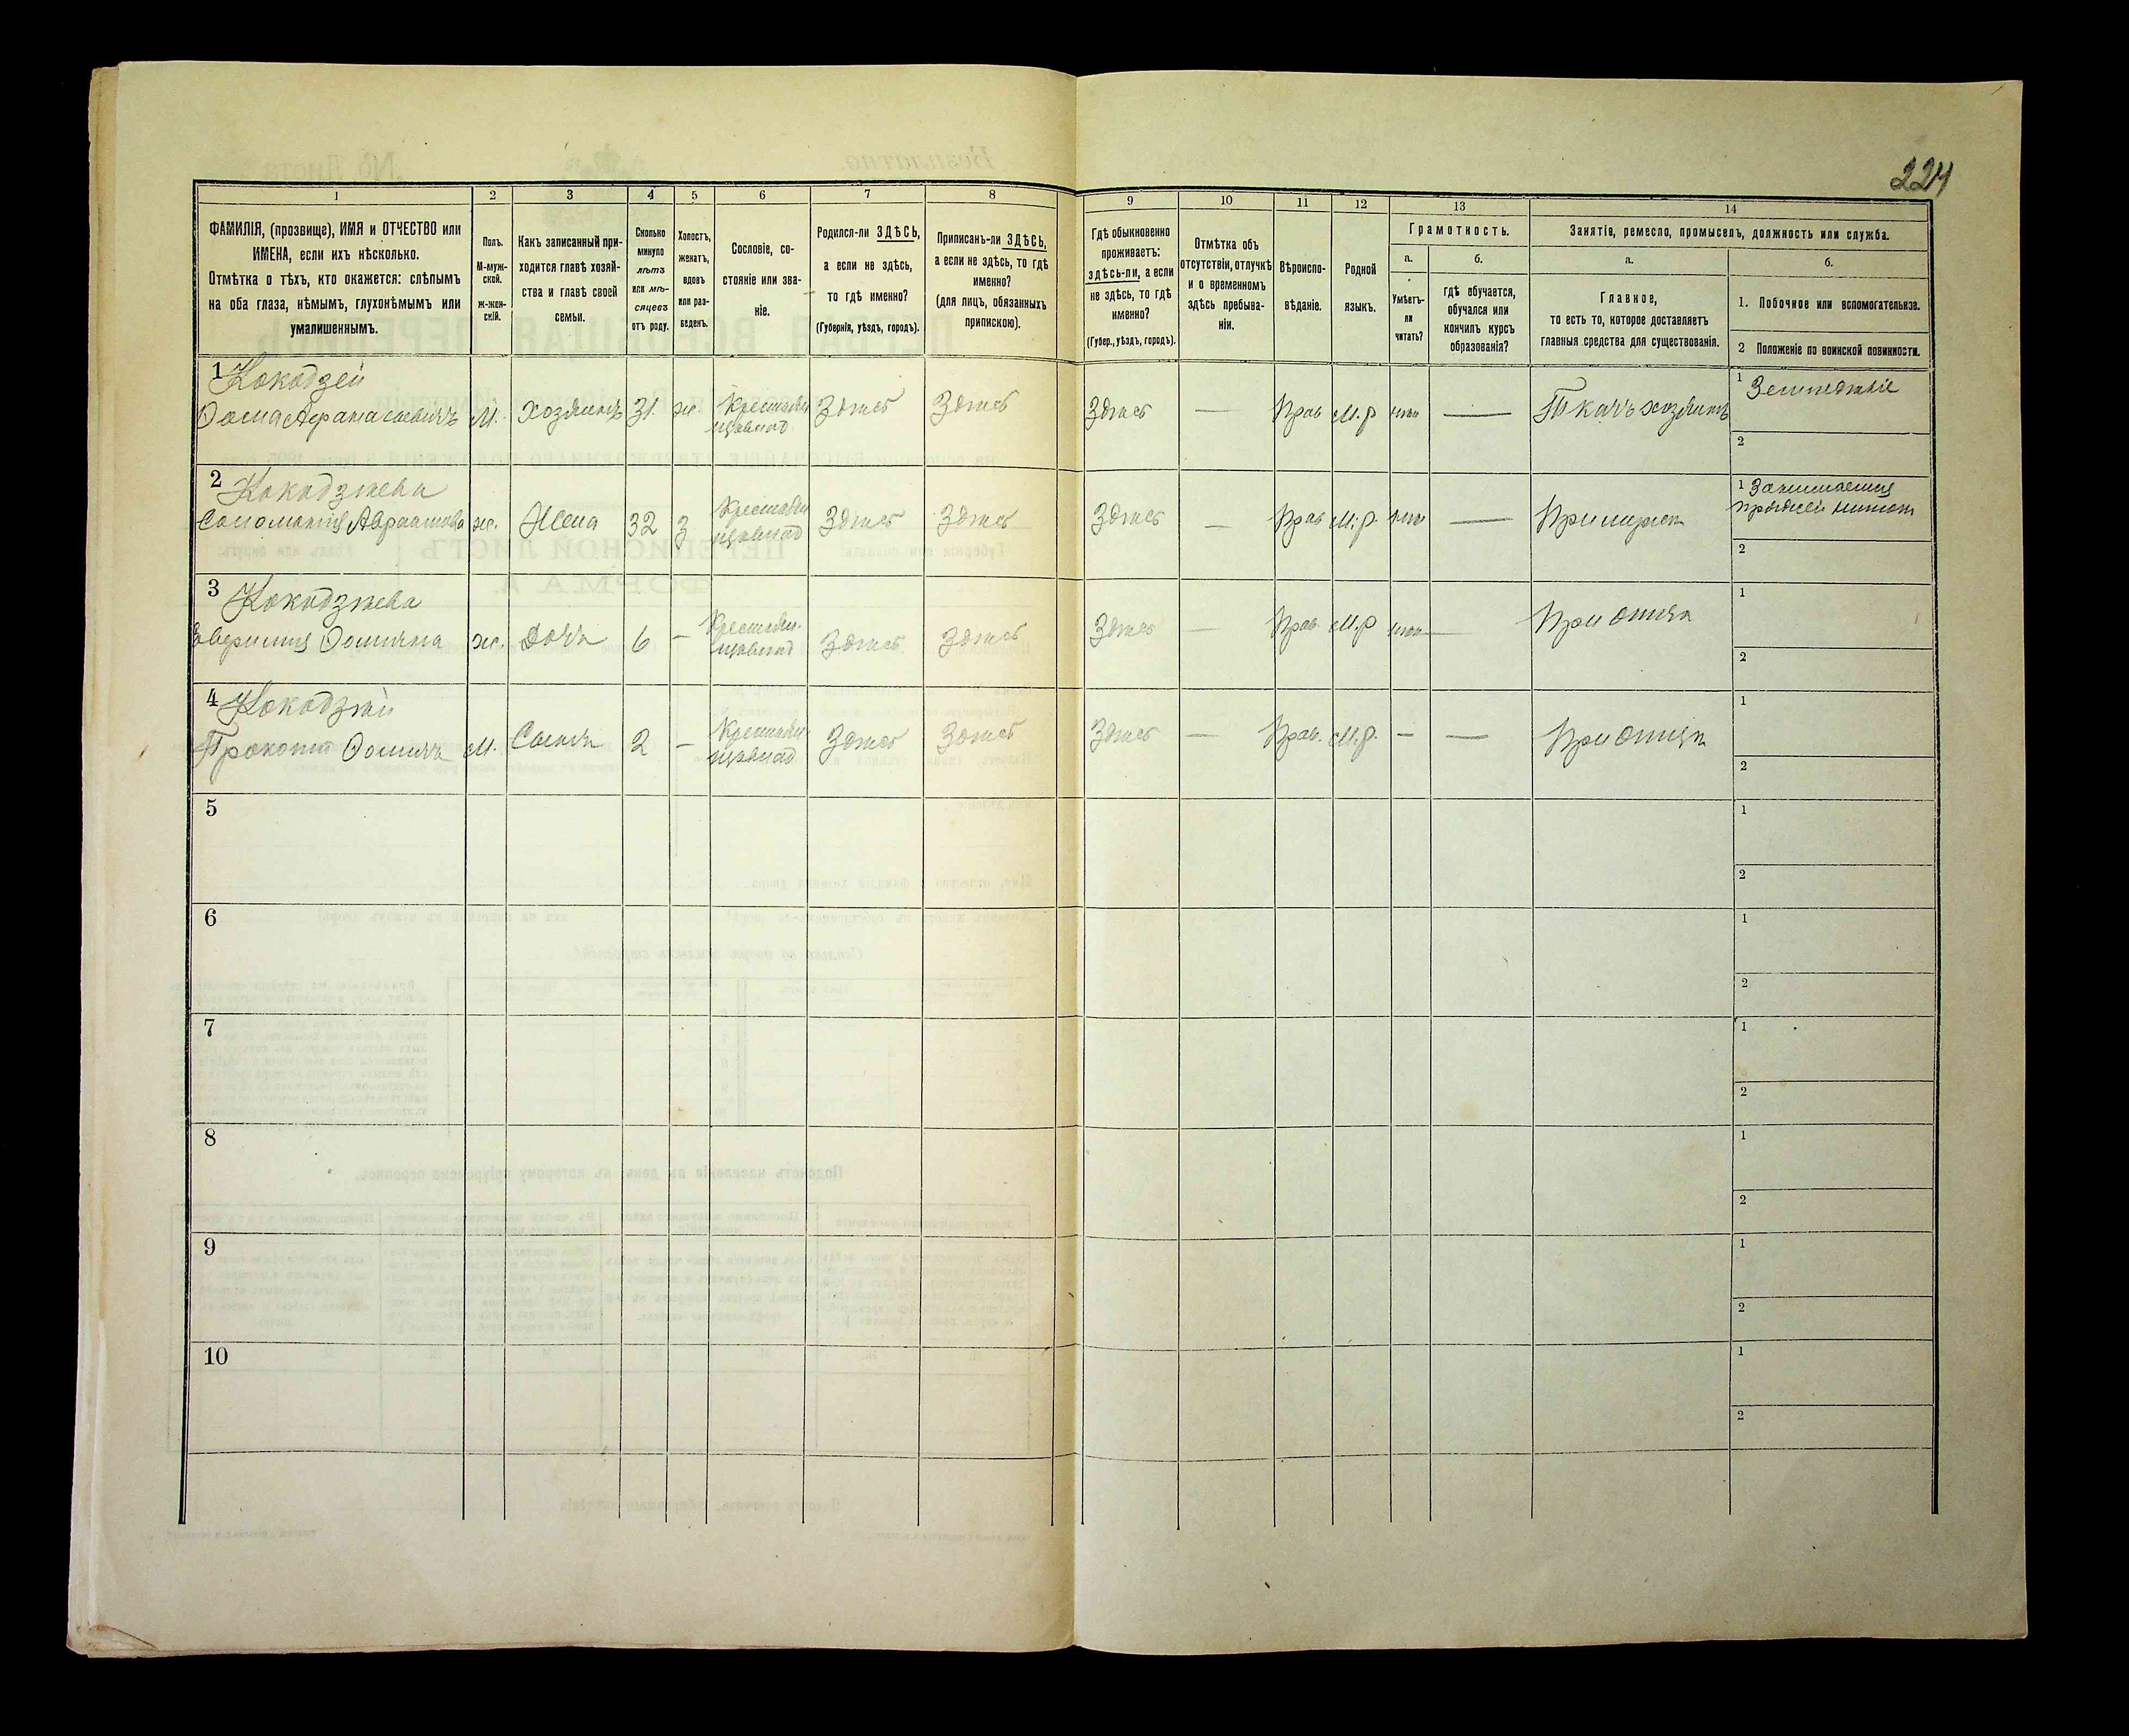 224
1 2 3 4 5 6 7 8 9 10 11 12 13 14
ФАМИЛІЯ, (прозвище), ИМЯ и ОТЧЕСТВО или
ИМЕНА, если ихъ нѣсколько.
Отмѣтка о тѣхъ, кто окажется: слѣпымъ
на оба глаза, нѣмымъ, глухонѣмымъ или
умалишеннымъ.
Полъ.
М-муж-
ской.
ж-жен-
скій.
Какъ записанный при-
ходится главѣ хозяй-
ства и главѣ своей
семьи.
Сколько
минуло
лѣтъ
или мѣ-
сяцевъ
отъ роду.
Холостъ,
женатъ,
вдовъ
или раз-
веденъ.
Сословіе, со-
стояніе или зва-
ніе.
Родился-ли ЗДѢСЬ,
а если не здѣсь,
то гдѣ именно?
(Губернія, уѣздъ, городъ).
Приписанъ-ли ЗДѢСЬ,
а если не здѣсь, то гдѣ
именно?
(для лицъ, обязанныхъ
припискою).
Гдѣ обыкновенно
проживаетъ:
здѣсь-ли, а если
не здѣсь, то гдѣ
именно?
(Губер., уѣздъ, городъ).
Отмѣтка объ
отсутствіи, отлучкѣ
и о временномъ
здѣсь пребыва-
ніи.
Вѣроиспо-
вѣданіе.
Родной
языкъ.
Грамотность.
а.
Умѣетъ-
ли
читать?
б.
гдѣ обучается,
обучался или
кончилъ курсъ
образованія?
Занятія, ремесло, промыселъ, должность или служба.
а.
Главное,
то есть то, которое доставляетъ
главныя средства для существованія.
б.
1. Побочное или вспомогательное.
2 Положеніе по воинской повинности.
1 Кокодзей
Ѳома Афанасьевичъ М. хозяинъ 31. ж. Крестьянин Здѣсь Здѣсь Здѣсь — Прав М.р нѣт — Ткачъ хозяинъ
1 Земледѣліе
2
2 Кокодзѣева
Соломанія Авраамова ж. Жена 32 З Здѣсь Здѣсь Здѣсь — Прав М.р. нѣт — При мужѣ
1 Занимается
пряжей нитокъ
2
3 Кокодзѣева
Ѳомична ж. Дочь 6 — Здѣсь Здѣсь Здѣсь — Прав. М.р нѣт — При отцѣ
1
2
4 Кокодзѣй
Прокопій Ѳомичъ М. Сынъ 2 — Здѣсь Здѣсь Здѣсь — Прав. М.р. — — При отцѣ
1
2
5
1
2
6
1
2
7
1
2
8
1
2
9
1
2
10
1
2